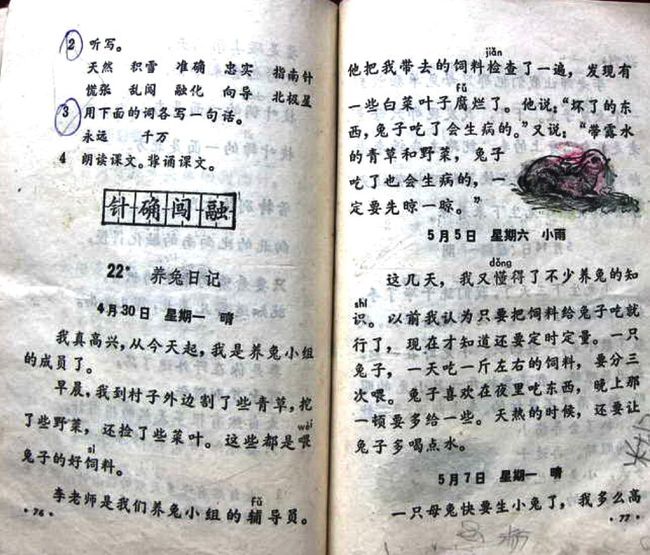 2 听写。
天然 积雪 准确 忠实 指南针
慌张 乱闯 融化 向导 北极星
3 用下面的词各写一句话。
永远 千万
4 朗读课文。背诵课文。
针 确 闯 融
22* 养兔日记
4月30日 星期一 晴
我真高兴，从今天起，我是养兔小组
的成员了。
早晨，我到村子外边割了些青草，挖
wèi
了些野菜，还捡了些菜叶。这些都是喂
sì
兔子的好饲料。
fǔ
李老师是我们养兔小组的辅导员。
·76·
jiǎn
他把我带去的饲料检查了一遍，发现有
fǔ
一些白菜叶子腐烂了。他说：“坏了的东
西，兔子吃了会生病的。”又说：“带露水
的青草和野菜，兔子
吃了也会生病的，一
定要先晾一晾。”
5月5日 星期六 小雨
dǒng
这几天，我又懂得了不少养兔的知
shi
识。以前我认为只要把饲料给兔子吃就
行了，现在才知道还要定时定量。一只
兔子，一天吃一斤左右的饲料，要分三
次喂。兔子喜欢在夜里吃东西，晚上那
一顿要多给一些。天热的时候，还要让
兔子多喝点水。
5月7日 星期一 晴
一只母兔快要生小兔了，我多么高
·77·